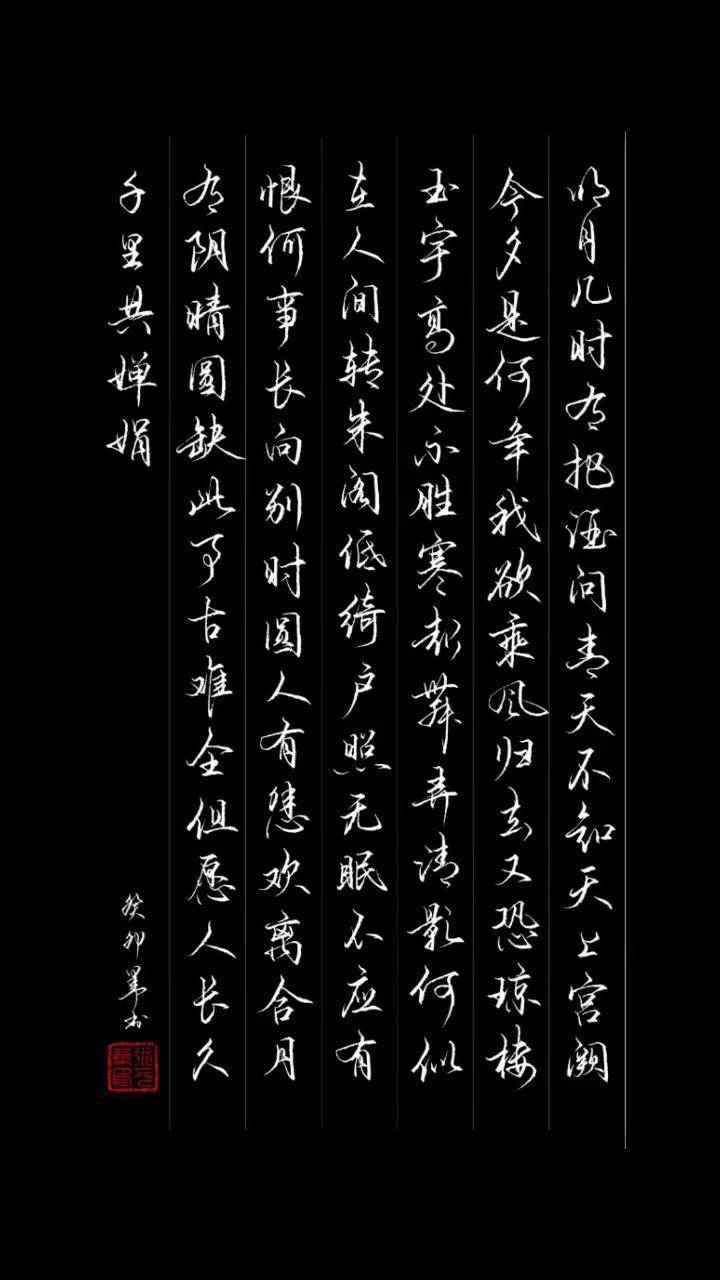 明月几时有把酒问青天不知天上宫阙
今夕是何年我欲乘风归去又恐琼楼
玉宇高处不胜寒起舞弄清影何似
在人间转朱阁低绮户照无眠不应有
恨何事长向别时圆人有悲欢离合月
有阴晴圆缺此事古难全但愿人长久
千里共婵娟
癸卯